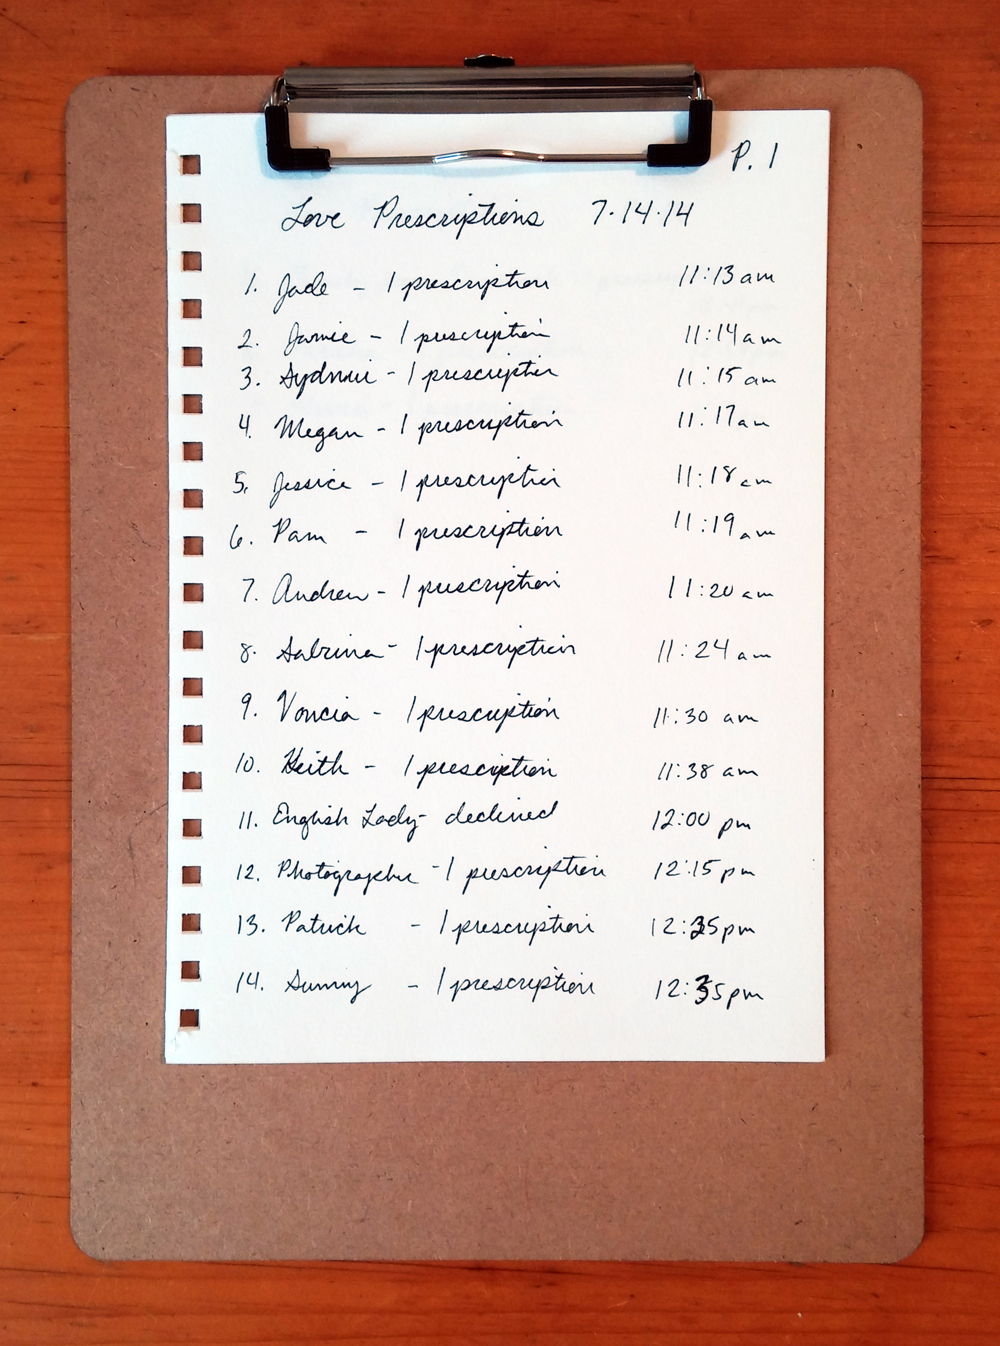 P. 1
Love Prescriptions 7·14·14
1. Jade - 1 prescription 11:13 am
2. Jamie - 1 prescription 11:14 am
3. Sydnnie - 1 prescription 11:15 am
4. Megan - 1 prescription 11:17 am
5. Jessica - 1 prescription 11:18 am
6. Pam - 1 prescription 11:19 am
7. Andrew - 1 prescription 11:20 am
8. Sabrina - 1 prescription 11:24 am
9. Voncia - 1 prescription 11:30 am
10. Keith - 1 prescription 11:38 am
11. English Lady - declined 12:00 pm
12. Photographer - 1 prescription 12:15 pm
13. Patrick - 1 prescription 12:35 pm
14. Sunny - 1 prescription 12:35 pm